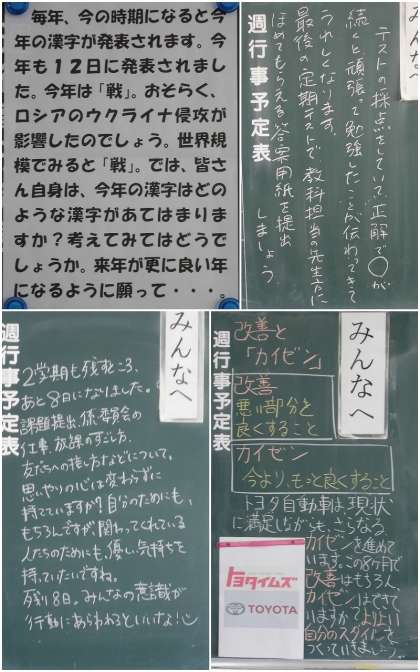 毎年、今の時期になると今
年の漢字が発表されます。今
年も12日に発表されまし
た。今年は「戦」。おそらく、
ロシアのウクライナ侵攻が
影響したのでしょう。世界規
模でみると「戦」。では、皆さ
ん自身は、今年の漢字はどの
ような漢字があてはまりま
すか？考えてみてはどうで
しょうか。来年が更に良い年
になるように願って・・・。
みんな
テストの採点をしていて、正解で〇が
続くと頑張って勉強したことが伝わってきて
うれしくなります。
最後の定期テストで、教科担当の先生方に
ほめてもらえる答案用紙を提出
しましょう。
週行事予定表
みんなへ
2学期も残すところ、
あと8日になりました。
課題提出、係、委員会の
仕事、放課のすごし方、
友だちへの接し方などについて。
思いやりの心を変わらずに
持てていますか？自分のためにも、
もちろんですが、関わってくれている
人たちのためにも、優しい気持ちを
持っていたいですね。
残り8日。みんなの意識が
行動にあらわれるといいな！
週行事予定表
みんなへ
改善と
「カイゼン」
改善
悪い部分を
良くすること
カイゼン
今より、もっと良くすること
トヨタ自動車は、現状
に満足しながらも、さらなる
カイゼンを進めて
います。この8ヶ月で
改善はもちろん、
カイゼンはできて
いますか？よりよい
自分のスタイルを
つくっていきましょう。
トヨタイムズ
TOYOTA
週行事予定表